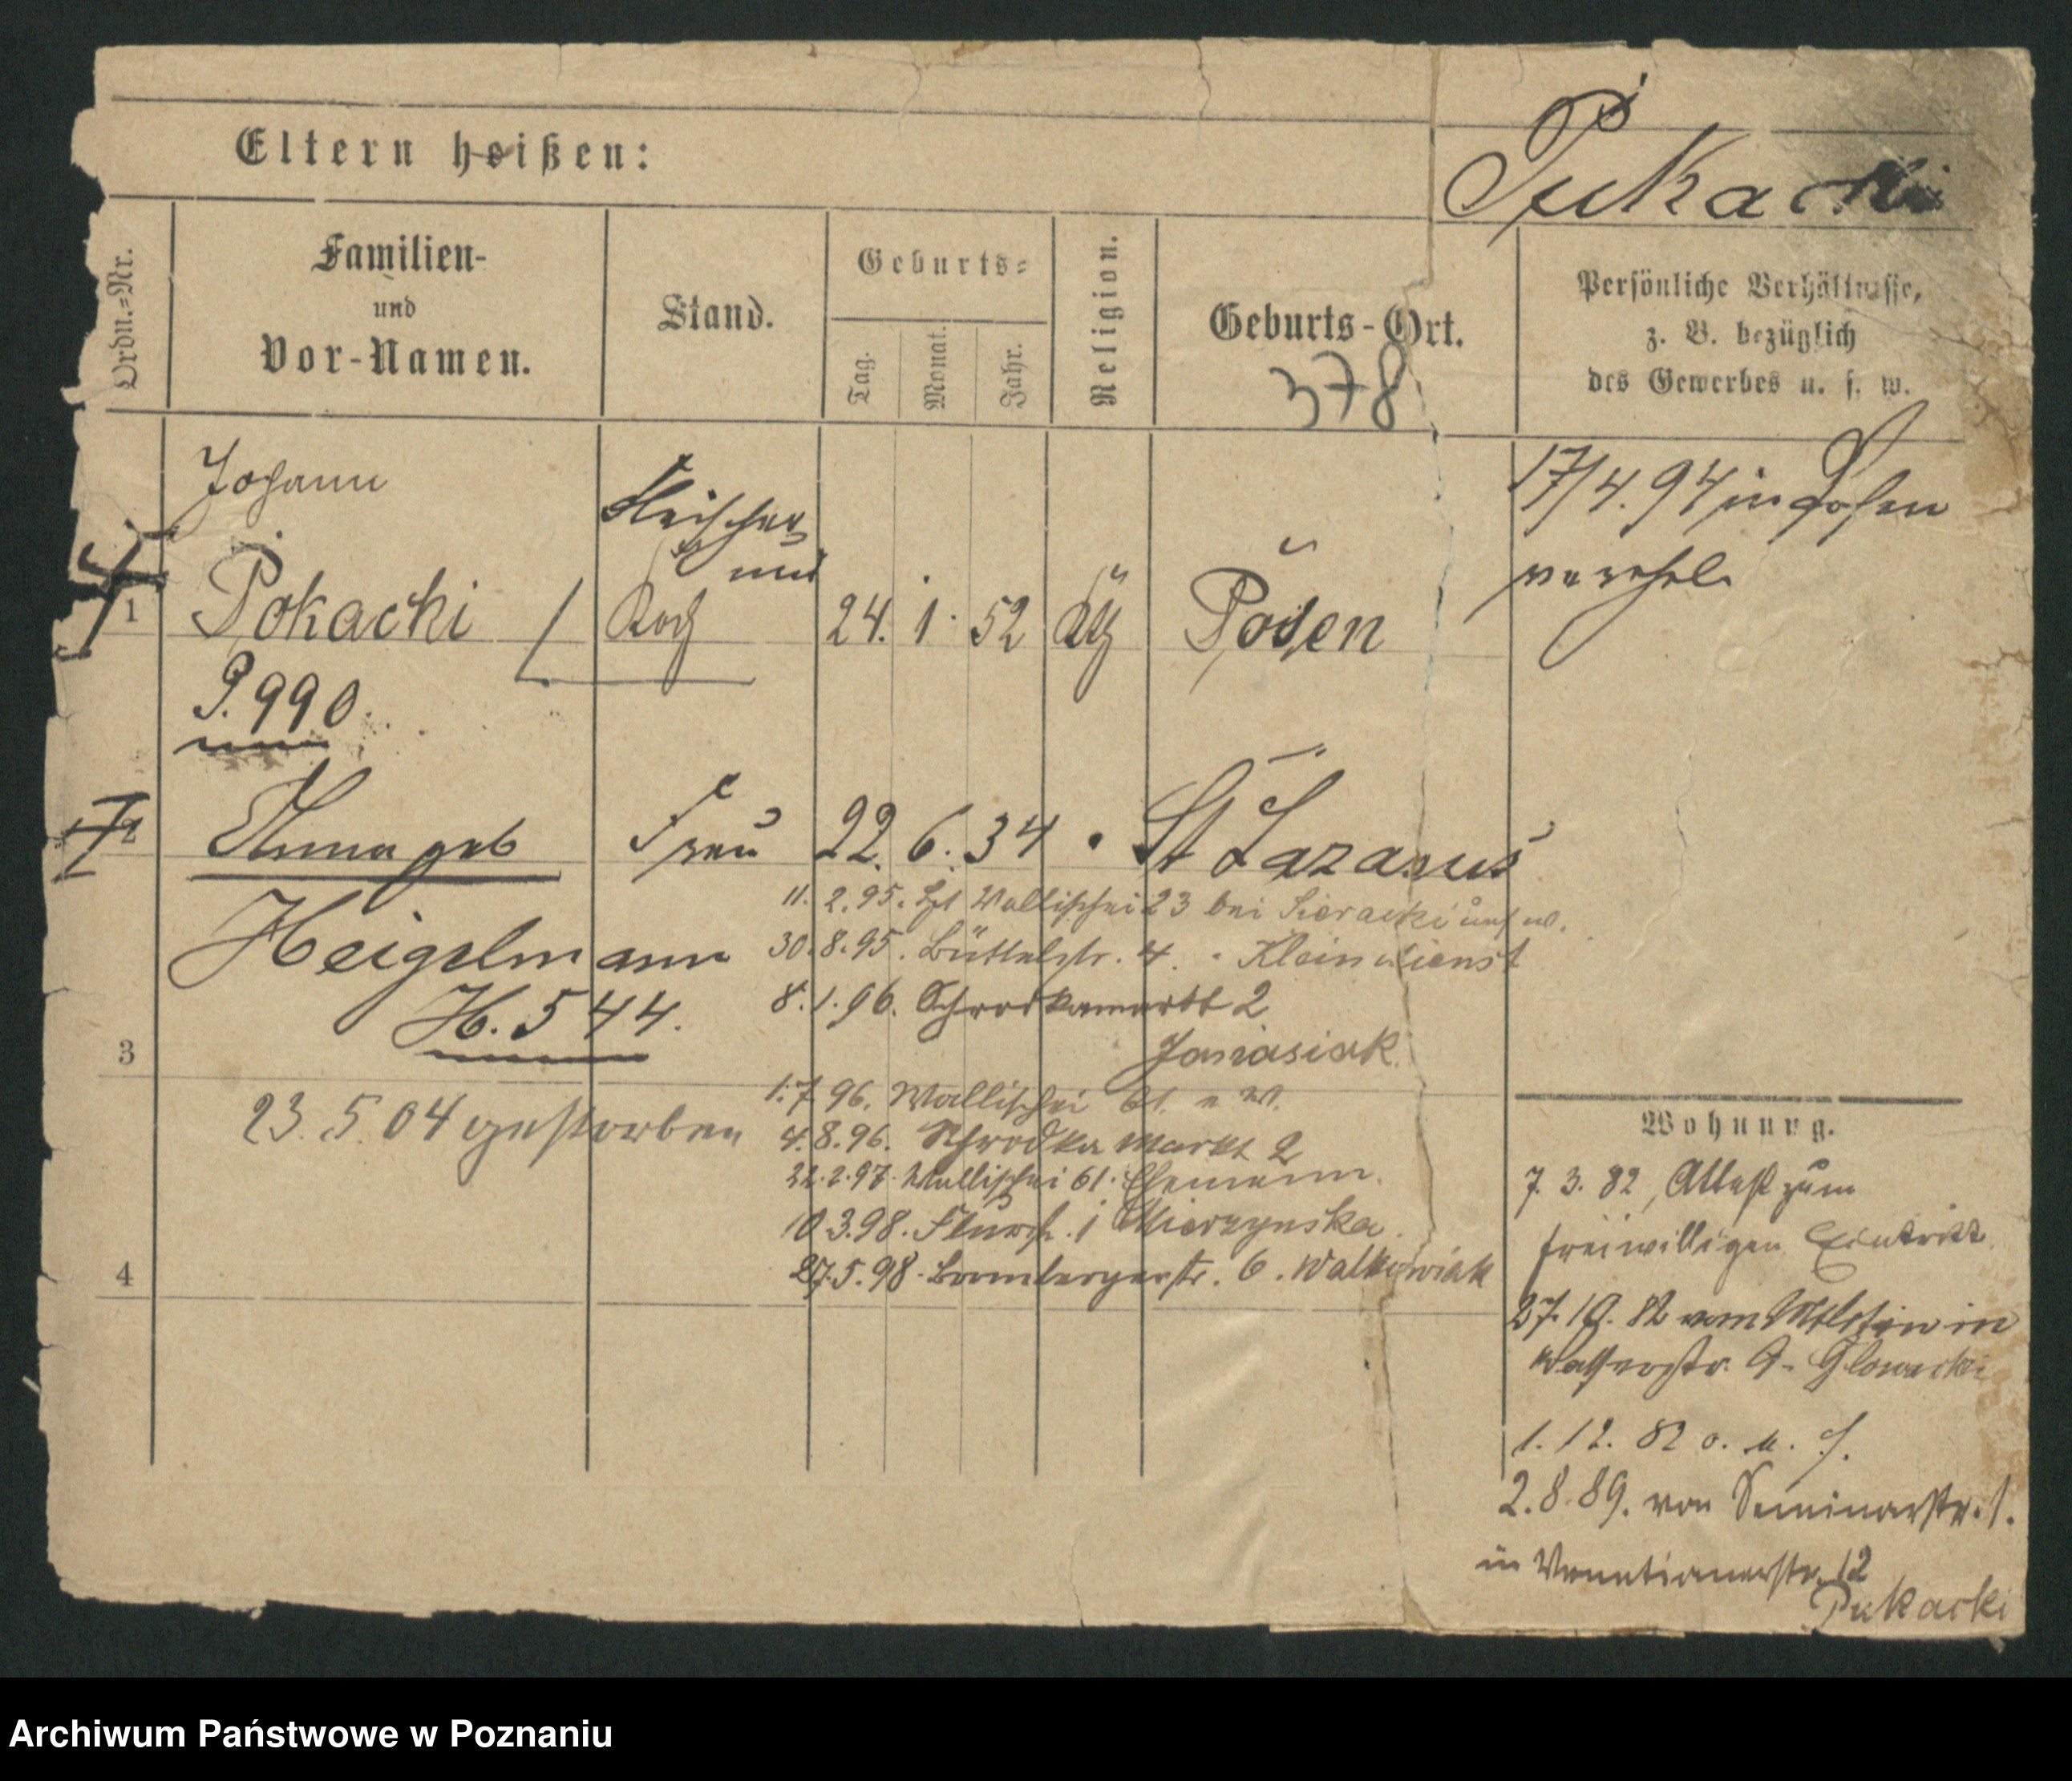 Eltern heißen:
Pukacki
Ordn.-Nr.
Familien-
und
Vor-Namen.
Stand.
Geburts-
Tag.
Monat.
Jahr.
Religion.
Geburts-Ort.
378
Persönliche Verhältnisse,
z. B. bezüglich
des Gewerbes u. s. w.
Johann
Fleischer
und
17/4.94 in Posen
verehel.
1 Pokacki Koch 24. 1. 52 Kth Posen
P. 990.
2 Anna geb Frau 22. 6. 34 St Lazarus
Heigelmann
H. 544.
11. 2. 95. Wallischei 23 bei Sieracki
30. 8. 95. Büttelstr. 4. Kleindienst
8. 1. 96. Schrodkamarkt 2
Janasiak
3
1. 7 96. Wallischei 61.
23. 5. 04 gestorben
4. 8. 96. Schrodka Markt 2
22. 2. 97. Wallischei 61. Ehemann.
10 3. 98. 1 Mierzynska
27. 5. 98. Brombergerstr. 6. Walkowiak
4
Wohnung.
7. 3. 82, Attest zum
freiwilligen Eintritt
27. 10. 82 vom in
Wasserstr. 9. Glowacki
1. 12. 82 o. u. f.
2. 8. 89. von Seminarstr. 1.
in Venetianerstr. 12
Pukacki
Archiwum Państwowe w Poznaniu